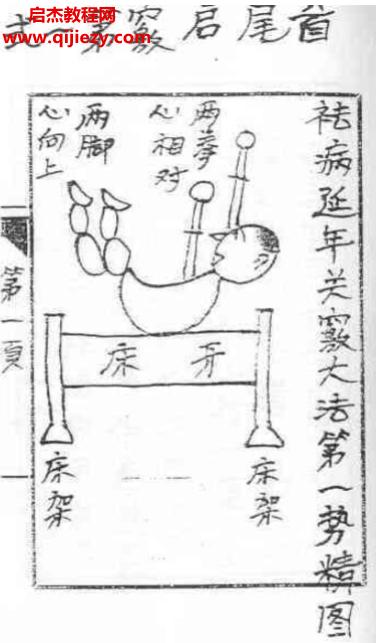 启杰教程网
www.qijiezy.com
首尾启竅第一式
祛病延年关竅大法第一势精图
两拳
心相对
两脚
心向上
牙床
床架
床架
第一頁